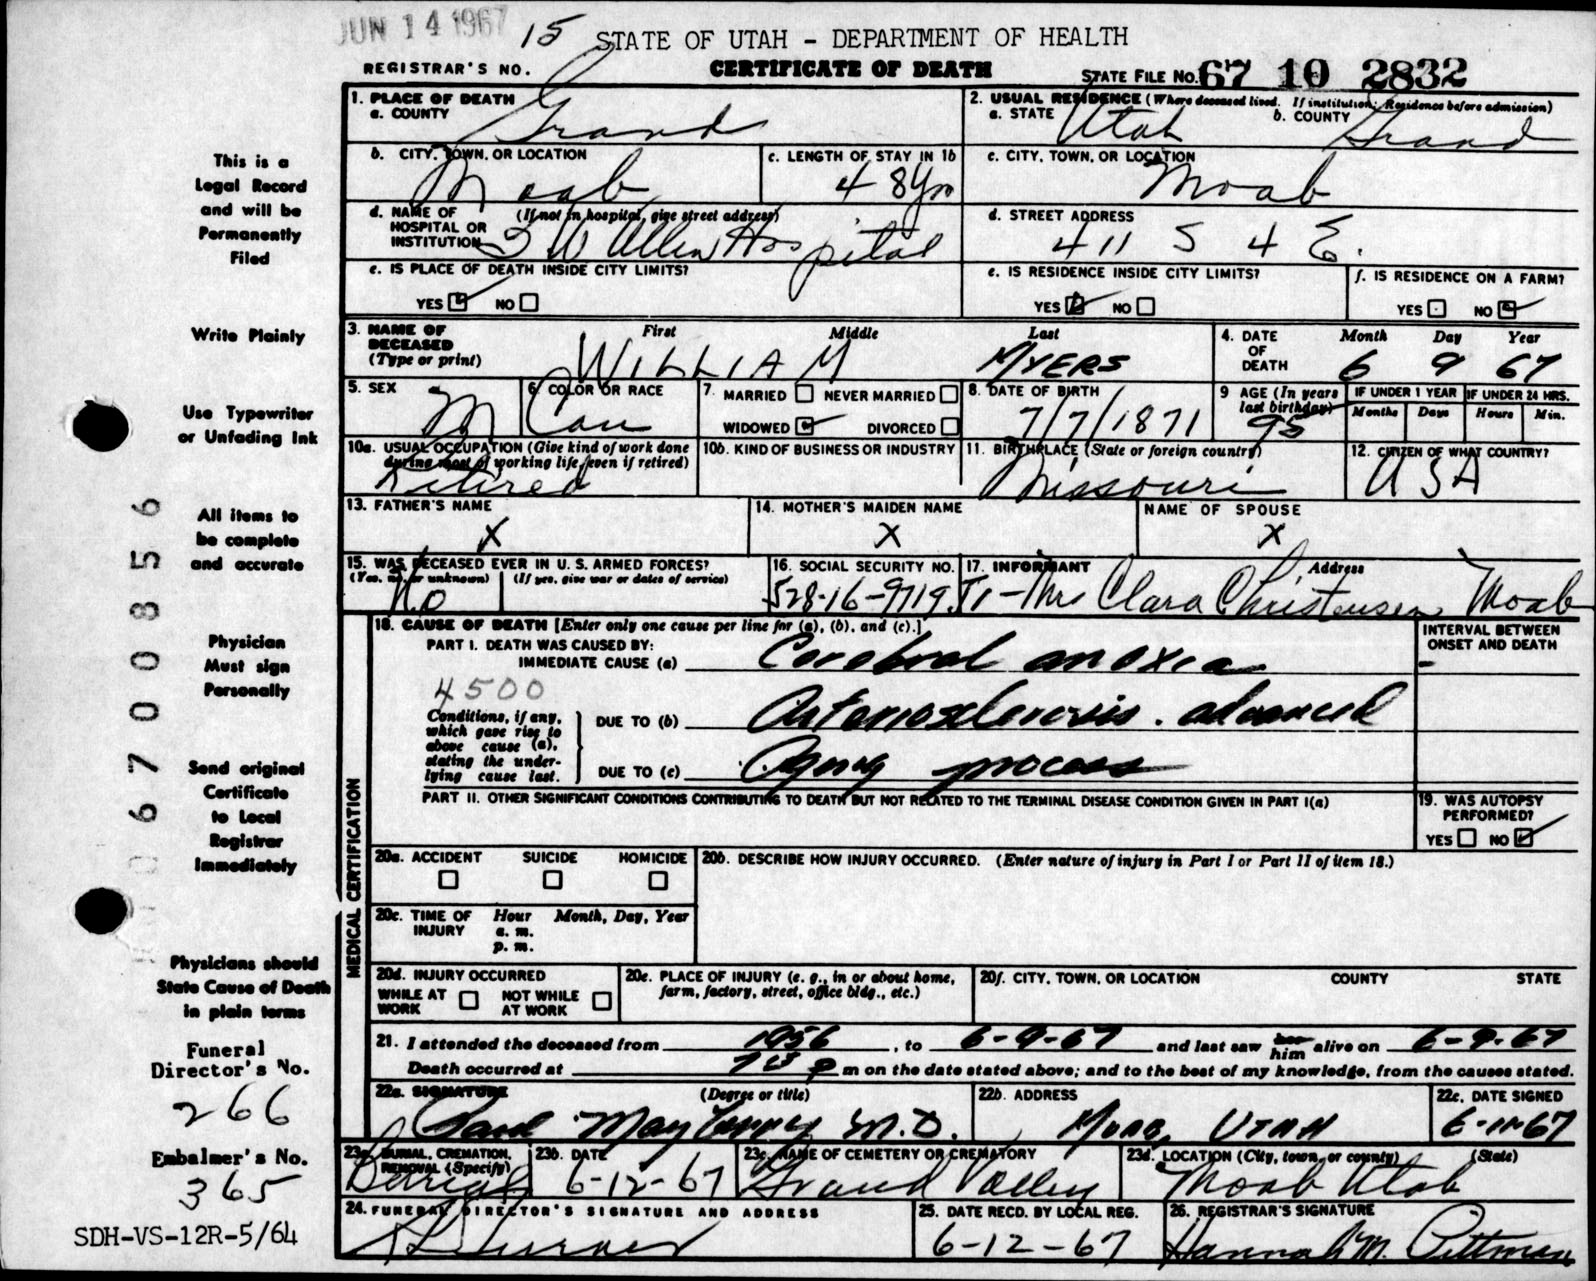 JUN 14 1967
15 STATE OF UTAH - DEPARTMENT OF HEALTH
REGISTRAR'S NO. CERTIFICATE OF DEATH STATE FILE NO. 67 10 2832
1. PLACE OF DEATH
a. COUNTY Grand
2. USUAL RESIDENCE (Where deceased lived. If institution: Residence before admission)
a. STATE Utah b. COUNTY Grand
b. CITY, TOWN, OR LOCATION Moab
c. LENGTH OF STAY IN 1b 48 Yrs
c. CITY, TOWN, OR LOCATION Moab
d. NAME OF HOSPITAL OR INSTITUTION (If not in hospital, give street address) W Allen Hospital
d. STREET ADDRESS 411 S 4 E.
e. IS PLACE OF DEATH INSIDE CITY LIMITS?
YES NO
e. IS RESIDENCE INSIDE CITY LIMITS?
YES NO
f. IS RESIDENCE ON A FARM?
YES NO
3. NAME OF DECEASED (Type or print) First Middle Last
WILLIAM MYERS
4. DATE OF DEATH Month Day Year
6 9 67
5. SEX M
6. COLOR OR RACE Cau
7. MARRIED NEVER MARRIED
WIDOWED DIVORCED
8. DATE OF BIRTH 7/7/1871
9 AGE (In years last birthday) 95
IF UNDER 1 YEAR Months Days
IF UNDER 24 HRS. Hours Min.
10a. USUAL OCCUPATION (Give kind of work done during most of working life, even if retired)
Retired
10b. KIND OF BUSINESS OR INDUSTRY
11. BIRTHPLACE (State or foreign country)
Missouri
12. CITIZEN OF WHAT COUNTRY?
USA
13. FATHER'S NAME
X
14. MOTHER'S MAIDEN NAME
X
NAME OF SPOUSE
X
15. WAS DECEASED EVER IN U. S. ARMED FORCES?
(Yes, no, or unknown) (If yes, give war or dates of service)
No
16. SOCIAL SECURITY NO.
528-16-9719
17. INFORMANT Address
Mrs Clara Christensen Moab
18. CAUSE OF DEATH [Enter only one cause per line for (a), (b), and (c).]
INTERVAL BETWEEN ONSET AND DEATH
PART I. DEATH WAS CAUSED BY:
IMMEDIATE CAUSE (a) Cerebral anoxia
4500
Conditions, if any, which gave rise to above cause (a), stating the underlying cause last.
DUE TO (b) Arteriosclerosis. advanced
DUE TO (c) Aging process
PART II. OTHER SIGNIFICANT CONDITIONS CONTRIBUTING TO DEATH BUT NOT RELATED TO THE TERMINAL DISEASE CONDITION GIVEN IN PART I(a)
19. WAS AUTOPSY PERFORMED?
YES NO
MEDICAL CERTIFICATION
20a. ACCIDENT SUICIDE HOMICIDE
20b. DESCRIBE HOW INJURY OCCURRED. (Enter nature of injury in Part I or Part II of item 18.)
20c. TIME OF INJURY Hour Month, Day, Year
a. m.
p. m.
20d. INJURY OCCURRED
WHILE AT WORK NOT WHILE AT WORK
20e. PLACE OF INJURY (e. g., in or about home, farm, factory, street, office bldg., etc.)
20f. CITY, TOWN, OR LOCATION COUNTY STATE
21. I attended the deceased from 1956, to 6-9-67 and last saw her him alive on 6-9-67
Death occurred at p m on the date stated above; and to the best of my knowledge, from the causes stated.
22a. SIGNATURE (Degree or title)
Paul Mayberry M.D.
22b. ADDRESS
MOAB, UTAH
22c. DATE SIGNED
6-11-67
23a. BURIAL, CREMATION, REMOVAL (Specify)
Burial
23b. DATE
6-12-67
23c. NAME OF CEMETERY OR CREMATORY
Grand Valley
23d. LOCATION (City, town, or county) (State)
Moab Utah
24. FUNERAL DIRECTOR'S SIGNATURE AND ADDRESS
25. DATE RECD. BY LOCAL REG.
6-12-67
26. REGISTRAR'S SIGNATURE
Hannah M. Pittman
This is a
Legal Record
and will be
Permanently
Filed
Write Plainly
Use Typewriter
or Unfading Ink
All items to
be complete
and accurate
Physician
Must sign
Personally
Send original
Certificate
to Local
Registrar
Immediately
Physicians should
State Cause of Death
in plain terms
Funeral
Director's No.
266
Embalmer's No.
365
SDH-VS-12R-5/64
6700856